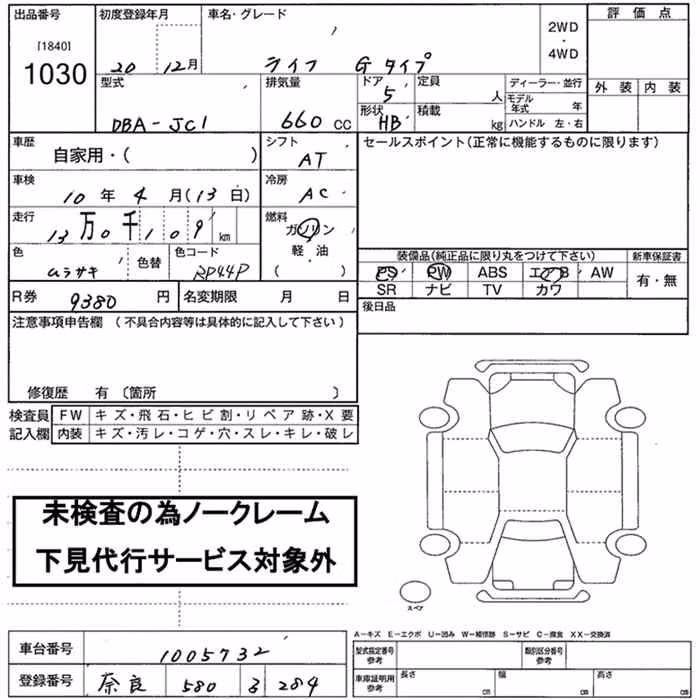 出品番号 初度登録年月 車名・グレード 2WD ・ 4WD 評価点
[1840]
1030 20 12月 ライフ Gタイプ
型式 排気量 ドア 5 定員 人 ディーラー・並行 外装 内装
モデル年式 年
DBA-JC1 660 CC 形状 HB 積載 kg ハンドル 左・右
車歴 シフト セールスポイント(正常に機能するものに限ります)
自家用・( ) AT
車検 冷房
10年4月(13日) AC
走行 燃料
13万0千109 km ガソリン
色 色替 色コード 軽・油 装備品(純正品に限り丸をつけて下さい) 新車保証書
ムラサキ RP44P ( ) PS PW ABS エアB AW 有・無
R券 9380 円 名変期限 月 日 SR ナビ TV カワ
注意事項申告欄 (不具合内容等は具体的に記入して下さい) 後日品
修復歴 有 〔箇所 〕
検査員 FW キズ・飛石・ヒビ割・リペア跡・X要
記入欄 内装 キズ・汚レ・コゲ・穴・スレ・キレ・破レ
未検査の為ノークレーム
下見代行サービス対象外
スペア
A-キズ E-エクボ U-凹み W-補修跡 S-サビ C-腐食 XX-交換済
車台番号 1005732 型式指定番号 参考 類別区分番号 参考
登録番号 奈良 580 284 車庫証明用 参考 長さ cm 幅 cm 高さ cm